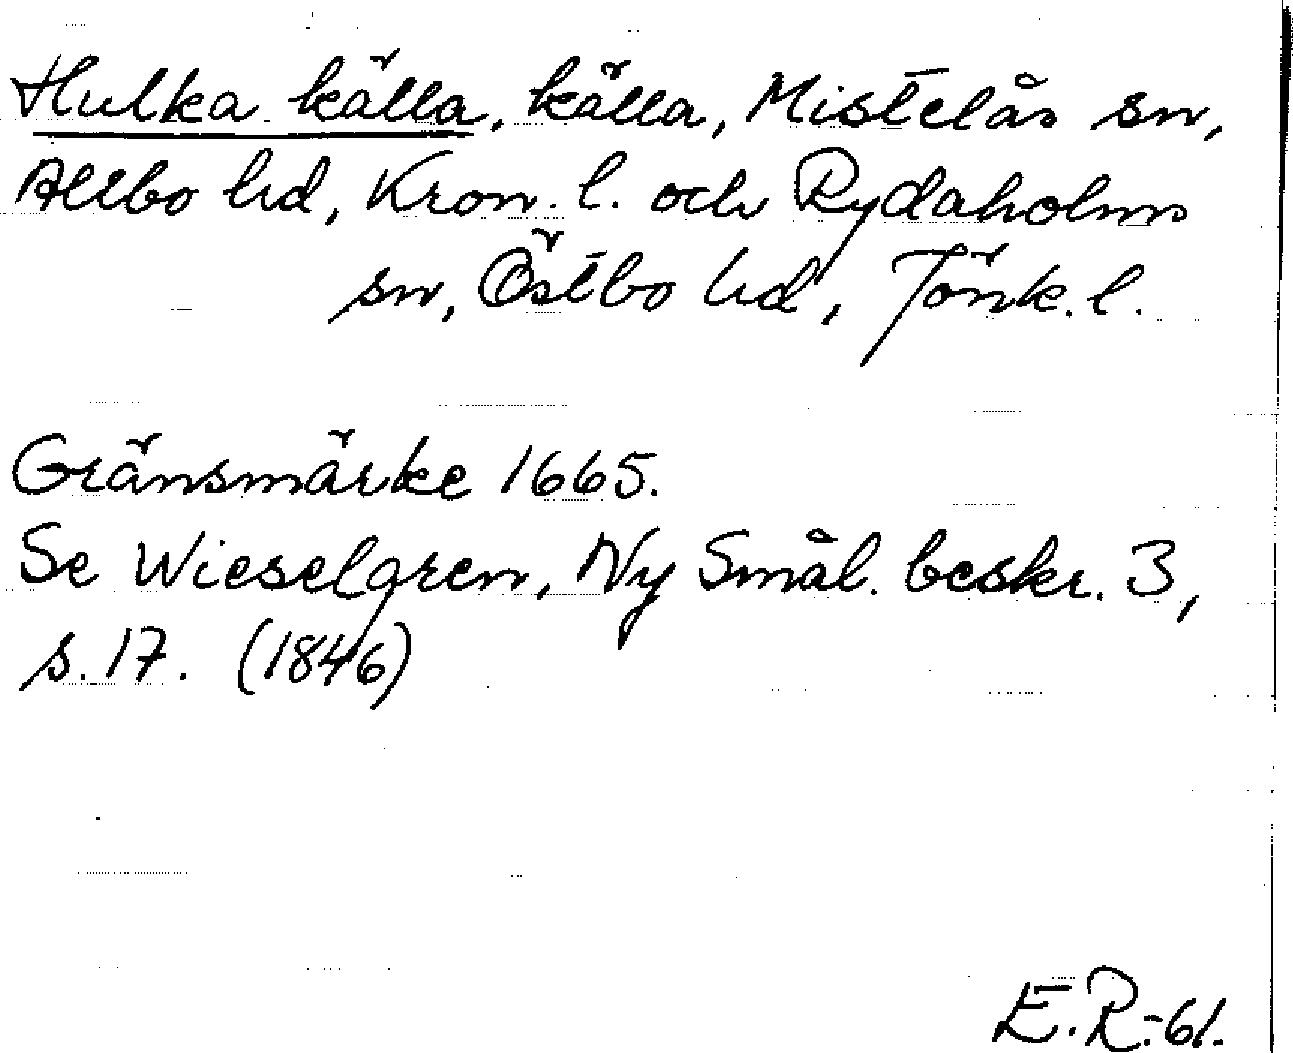 Hulka källa, källa, Mistelås sn,
Allbo hd, Kron. l. och Rydaholms
sn, Östbo hd, Jönk. l.
Gränsmärke 1665.
Se Wieselgren, Ny Smål. beskr. 3,
s. 17. (1846)
E.R.-61.